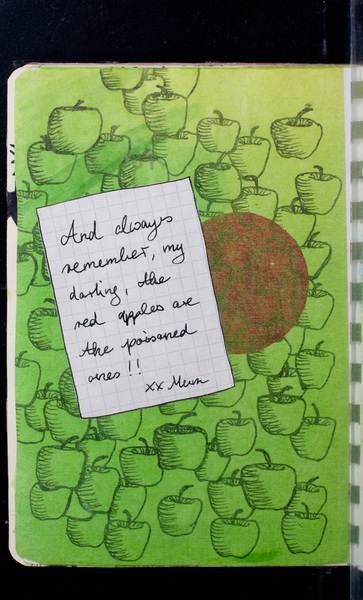 And always
remember, my
darling, the
red apples are
the poisoned
ones!!
xx Mum